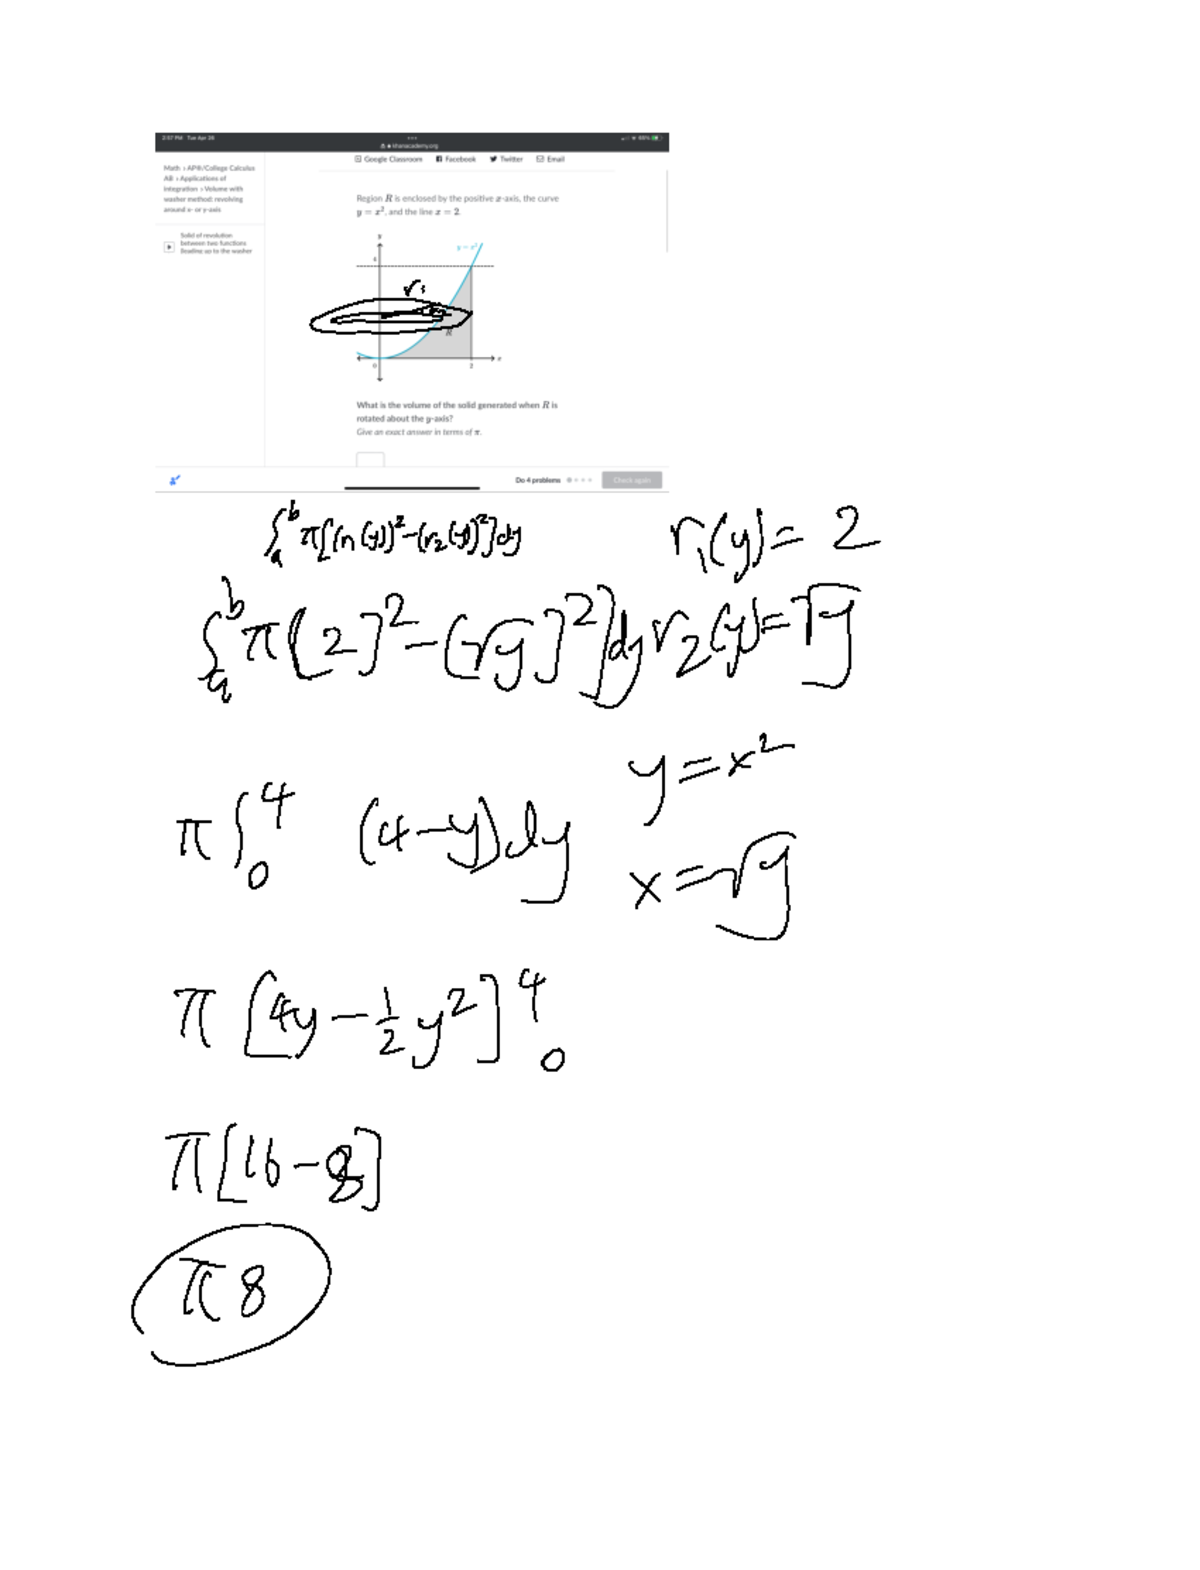 2:57 PM Tue Apr 28
khanacademy.org
Google Classroom Facebook Twitter Email
Math › AP®/College Calculus
AB › Applications of
integration › Volume with
washer method: revolving
around x- or y-axis
Solid of revolution
between two functions
(leading up to the washer
Region R is enclosed by the positive x-axis, the curve
y = x², and the line x = 2.
y
y = x²
4
r₁
R
0 2 x
What is the volume of the solid generated when R is
rotated about the y-axis?
Give an exact answer in terms of π.
Do 4 problems Check again
∫ₐᵇ π[(r₁(y))² - (r₂(y))²]dy r₁(y) = 2
∫ₐᵇ π[2]² - [√y]²]dy r₂(y) = √y
y = x²
π ∫₀⁴ (4 - y) dy
x = √y
π [4y - 1/2 y²]⁴₀
π[16 - 8]
π 8